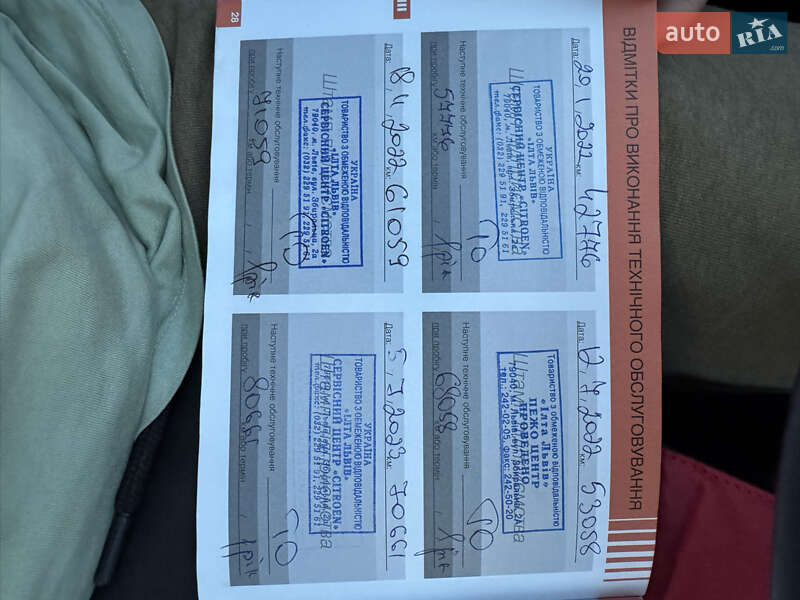 auto RIA.com
ВІДМІТКИ ПРО ВИКОНАННЯ ТЕХНІЧНОГО ОБСЛУГОВУВАННЯ
Дата: 20,1,2022 км: 42776
УКРАЇНА
ТОВАРИСТВО З ОБМЕЖЕНОЮ ВІДПОВІДАЛЬНІСТЮ
«ІЛТА ЛЬВІВ»
СЕРВІСНИЙ ЦЕНТР «CITROEN»
79040, м. Львів, вул.
тел.факс: (032) 229 51 91, 229 51 61
ТО
Наступне технічне обслуговування
при пробігу 57776 км або термін 1рік
Дата: 12,7,2022 км: 53058
Товариство з обмеженою відповідальністю
«Ілта Львів»
ПЕЖО ЦЕНТР
ПРОВЕДЕНО
79040, м. Львів, вул.
тел.: 242-02-05, факс: 242-50-20
ТО
Наступне технічне обслуговування
при пробігу 68058 км або термін 1рік
Дата: 18,11,2022 км: 61059
УКРАЇНА
ТОВАРИСТВО З ОБМЕЖЕНОЮ ВІДПОВІДАЛЬНІСТЮ
«ІЛТА ЛЬВІВ»
СЕРВІСНИЙ ЦЕНТР «CITROEN»
79040, м. Львів, вул. Збиральна, 2а
тел.факс: (032) 229 51 91, 229 51 61
ТО
Наступне технічне обслуговування
при пробігу 71059 км або термін 1рік
Дата: 5,7,2023 км: 70661
УКРАЇНА
ТОВАРИСТВО З ОБМЕЖЕНОЮ ВІДПОВІДАЛЬНІСТЮ
«ІЛТА ЛЬВІВ»
СЕРВІСНИЙ ЦЕНТР «CITROEN»
тел.факс: (032) 229 51 91, 229 51 61
ТО
Наступне технічне обслуговування
при пробігу 80661 км або термін 1рік
28